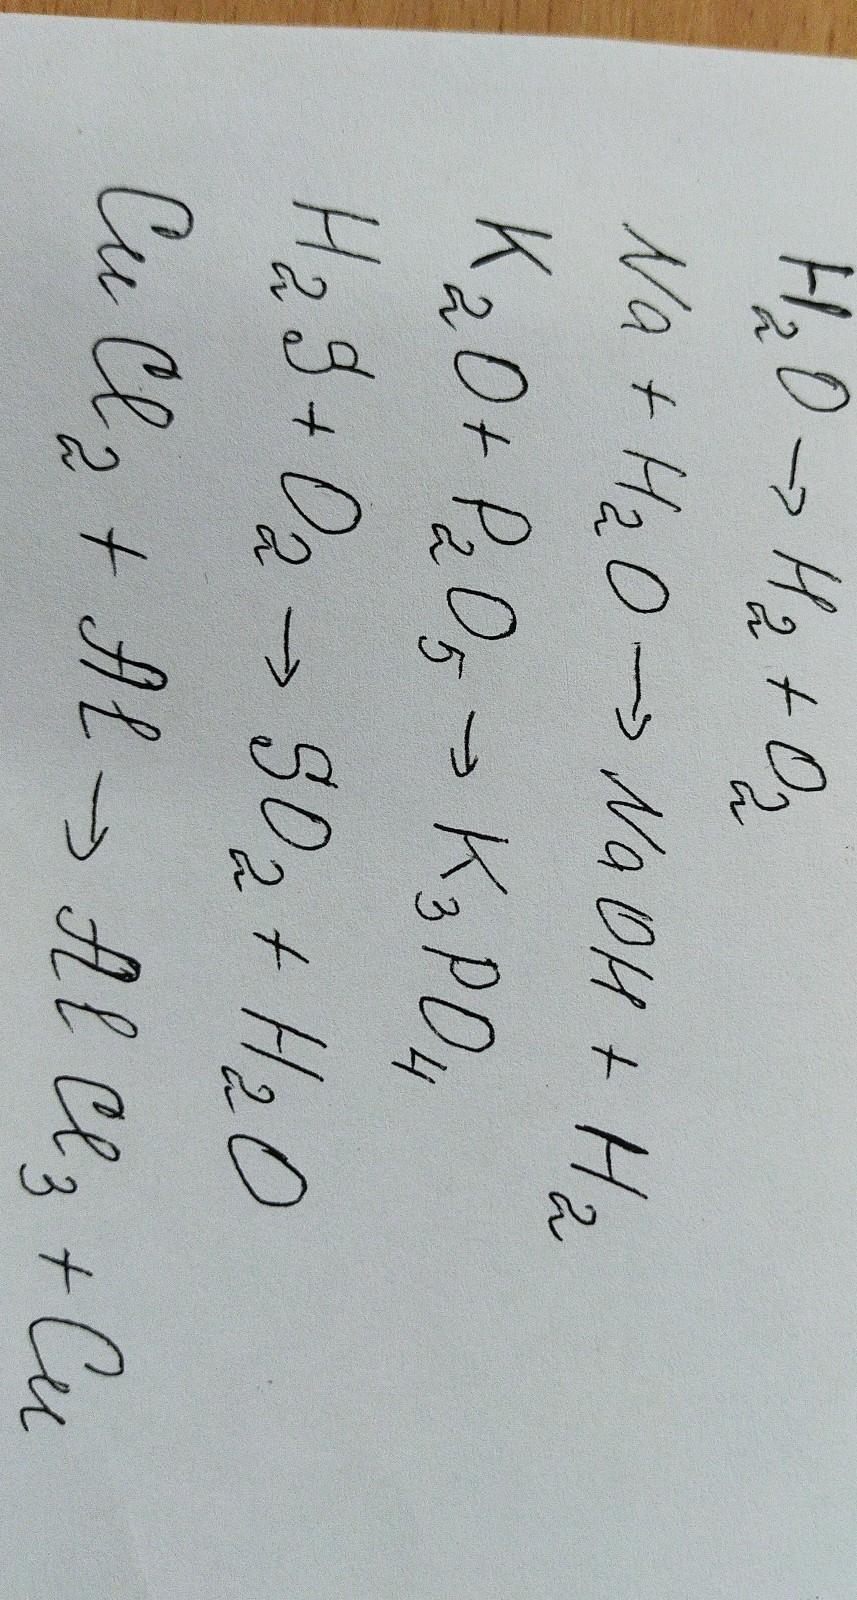 H₂O → H₂ + O₂
Na + H₂O → NaOH + H₂
K₂O + P₂O₅ → K₃PO₄
H₂S + O₂ → SO₂ + H₂O
CuCl₂ + Al → AlCl₃ + Cu